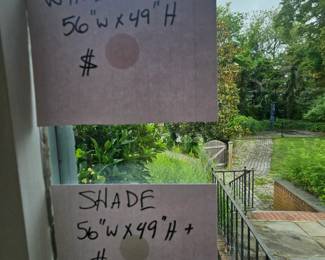 56"W X 49"H
$
SHADE
56"W X 49"H +
$